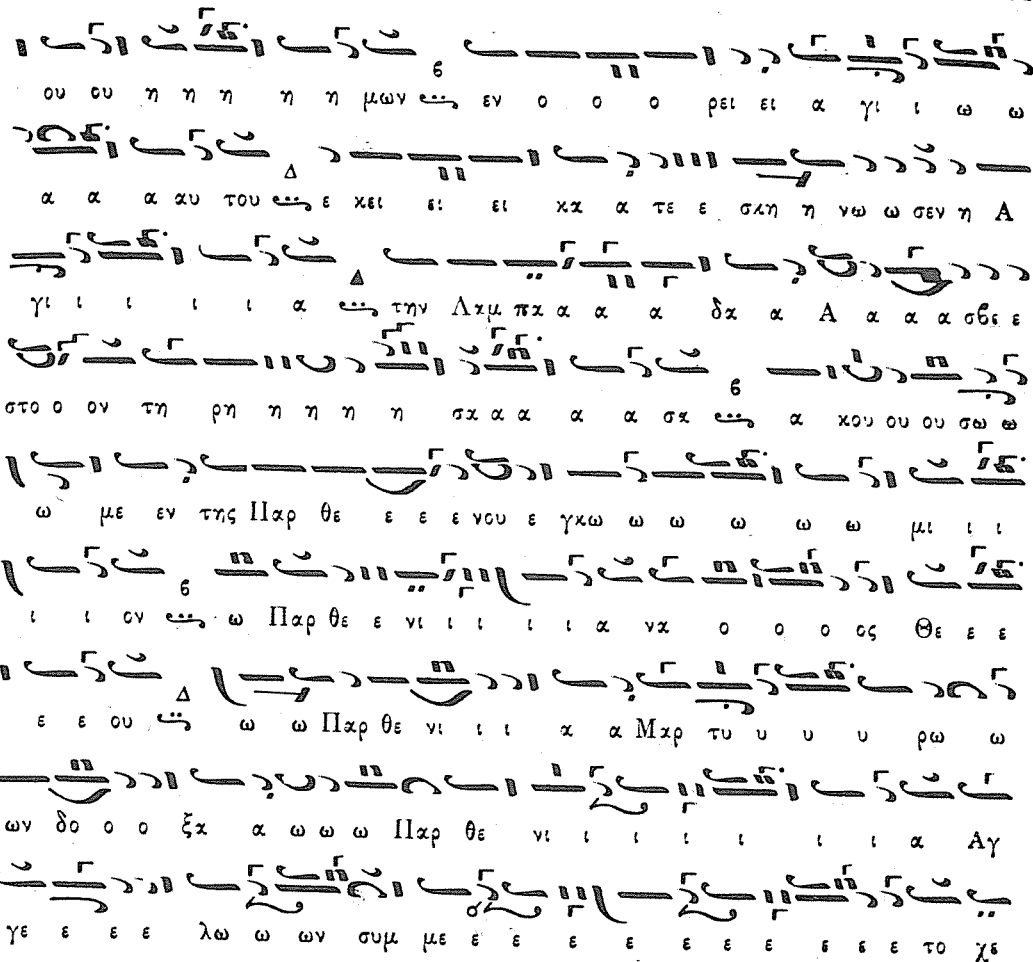 ου ου η η η η η μων εν ο ο ο ρει ει α γι ι ω ω
α α α αυ του ε κει ει ει κα α τε ε σκη η νω ω σεν η Α
γι ι ι ι ι α την Λαμ πα α α α δα α Α α α α σβε ε
στο ο ον τη ρη η η η η σα α α α α σα α κου ου ου σω ω
ω με εν της Παρ θε ε ε ε νου ε γκω ω ω ω ω ω μι ι ι
ι ι ον ω Παρ θε ε νι ι ι ι ι α να ο ο ο ος Θε ε ε
ε ε ου ω ω Παρ θε νι ι ι α α Μαρ τυ υ υ υ ρω ω
ων δο ο ο ξα α ω ω ω Παρ θε νι ι ι ι ι ι ι α Αγ
γε ε ε ε λω ω ων συμ με ε ε ε ε ε ε ε ε ε το χε